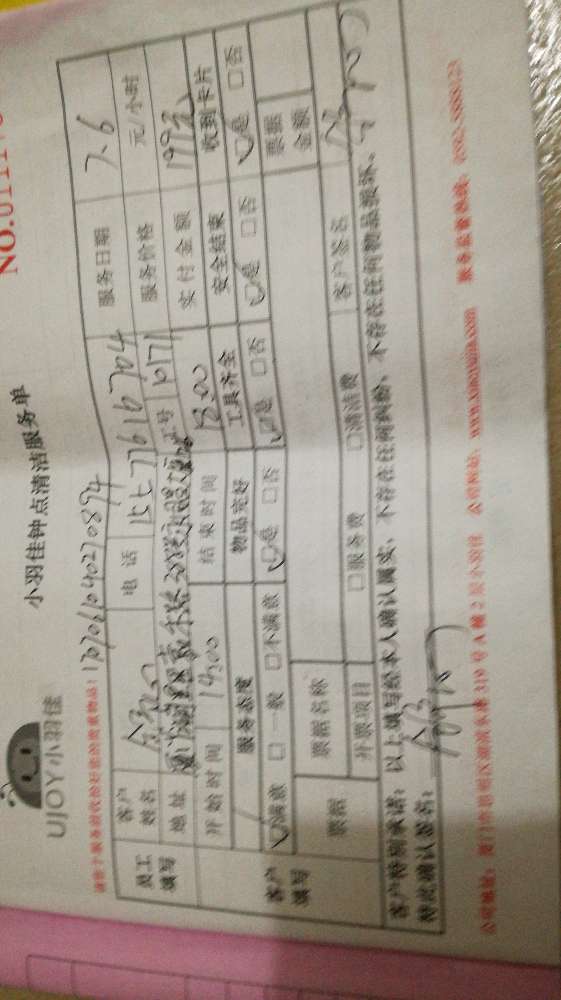 NO.01117
UJOY小羽佳
小羽佳钟点清洁服务单
请您于服务前收检好您的贵重物品! 1707061040270894
员工填写
客户姓名 电话 服务日期 7.6
地址 工号 服务价格 元/小时
开始时间 14:00 结束时间 18:00 实付金额 199元
客户填写
服务态度 物品完好 工具齐全 安全结束 收到卡片
☑满意 □一般 □不满意 ☑是 □否 ☑是 □否 ☑是 □否 ☑是 □否
票据 票据名称 票据金额
开票项目 □服务费 □清洁费 客户签名
客户特别承诺:以上填写经本人确认属实,不存在任何纠纷,不存在任何物品损坏。
特此确认签名:
公司地址: 厦门市思明区湖滨 310号A幢2层小羽佳 公司网址: www.xiaoyujia.com 服务监督热线: